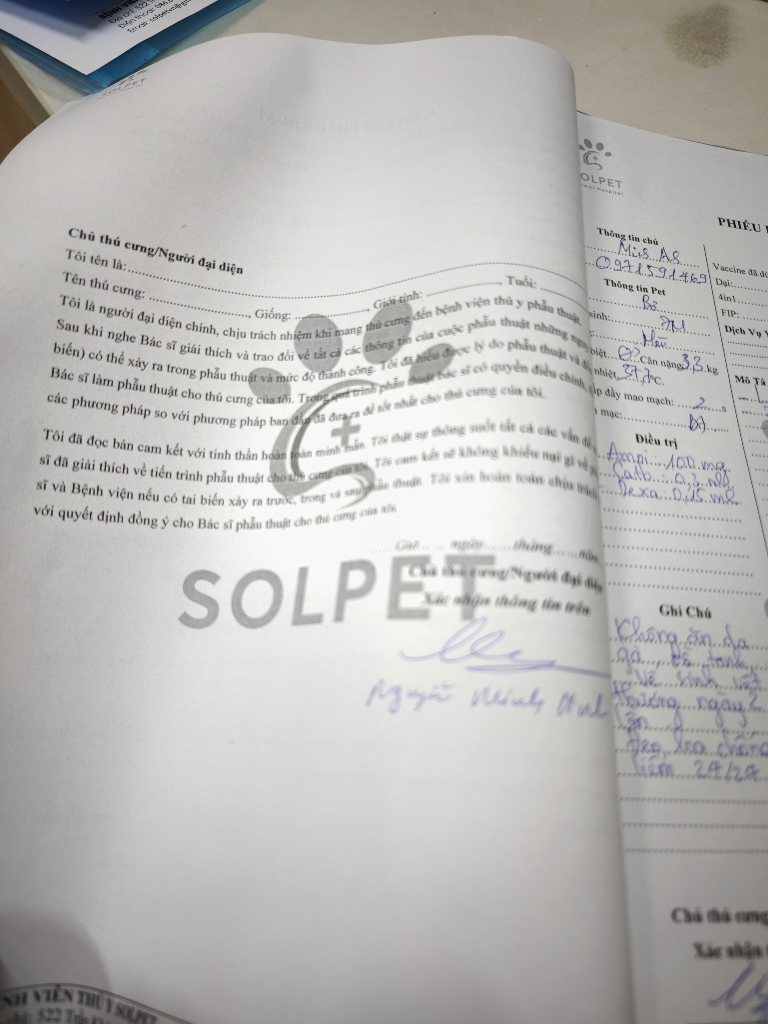 SOLPET
Chủ thú cưng/Người đại diện
Tôi tên là:
Tên thú cưng: , Giống: , Giới tính: , Tuổi:
Tôi là người đại diện chính, chịu trách nhiệm khi mang thú cưng đến bệnh viện thú y phẫu thuật.
Sau khi nghe Bác sĩ giải thích và trao đổi về tất cả các thông tin của cuộc phẫu thuật những
biến) có thể xảy ra trong phẫu thuật và mức độ thành công. Tôi đã hiểu được lý do phẫu thuật và
Bác sĩ làm phẫu thuật cho thú cưng của tôi. Trong quá trình phẫu thuật bác sĩ có quyền điều chỉnh
các phương pháp so với phương pháp ban đầu đã đưa ra để tốt nhất cho thú cưng của tôi.
Tôi đã đọc bản cam kết với tinh thần hoàn toàn minh mẫn. Tôi thật sự thông suốt tất cả các vấn đề
sĩ đã giải thích về tiến trình phẫu thuật cho thú cưng của tôi. Tôi cam kết sẽ không khiếu nại gì về
sĩ và Bệnh viện nếu có tai biến xảy ra trước, trong và sau phẫu thuật. Tôi xin hoàn toàn chịu trách
với quyết định đồng ý cho Bác sĩ phẫu thuật cho thú cưng của tôi
ngày tháng năm
Chủ thú cưng/Người đại diện
Xác nhận thông tin trên
SOLPET
Minh
OLPET
PHIẾU
Thông tin chủ
0971591469
Thông tin Pet
sinh:
biệt Cân nặng 3,3 kg
nhiệt 37,7°C.
đầy mao mạch: 2 s
mạc:
Vaccine đã
Dại:
4in1
FIP:
Dịch Vụ
Mô Tả
Điều trị
Ampi 100 mg
Dexa 0,15 ml
Ghi Chú
Không ăn da
gà, đồ tanh
Vệ sinh vết
thương ngày 2
lần
Đeo loa chống
liếm 24/24
Chủ thú cưng
Xác nhận
VIỆN THÚ Y SOLPET
522